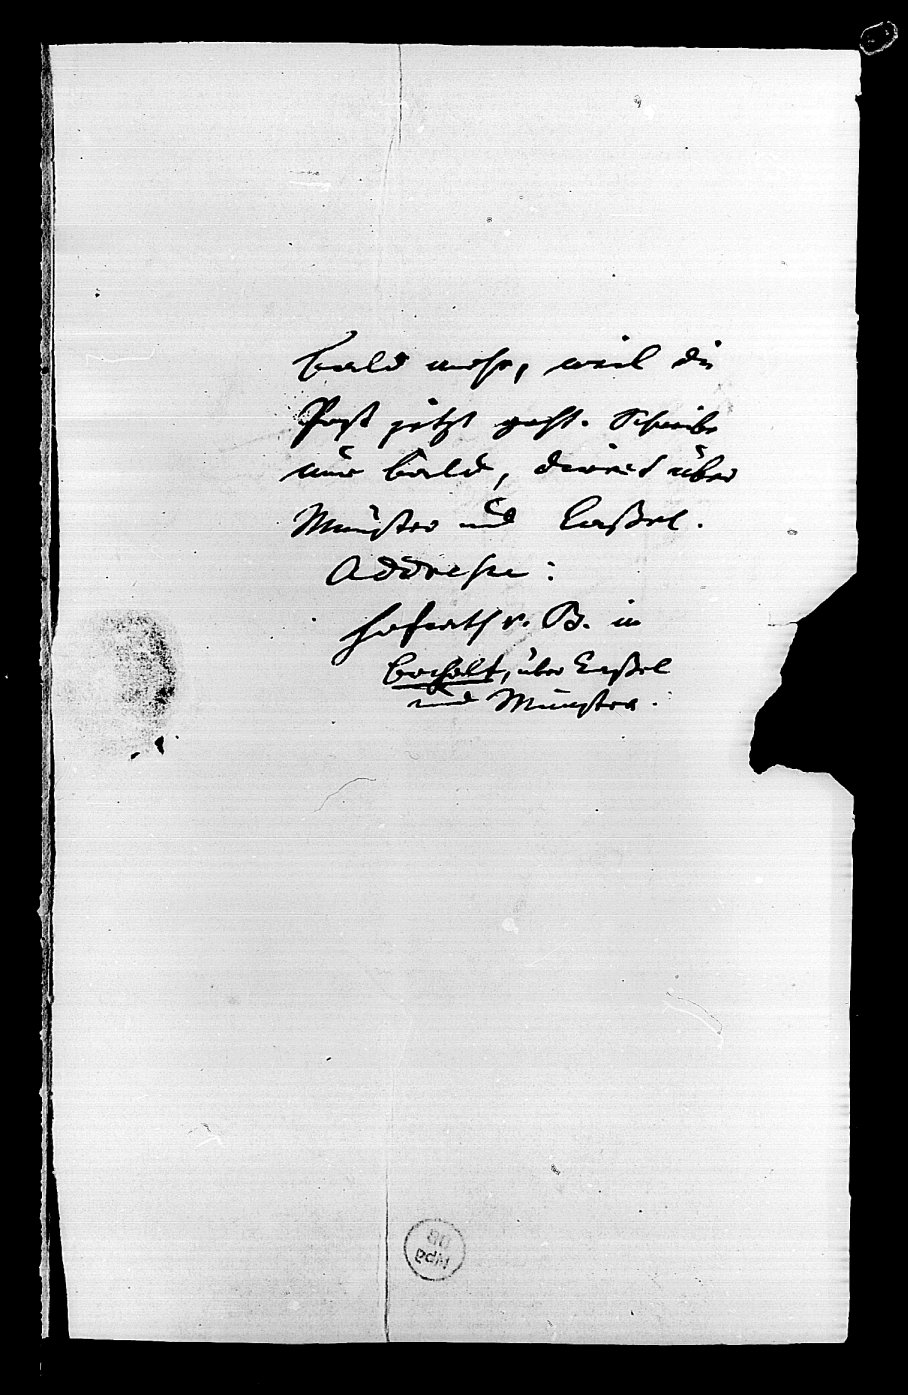 bald mehr, weil die
Post jetzt geht. Schreibe
nur bald, direct über
Münster und Caßel.
Addresse:
Hofrath v. B. in
Bocholt, über Caßel
und Münster.